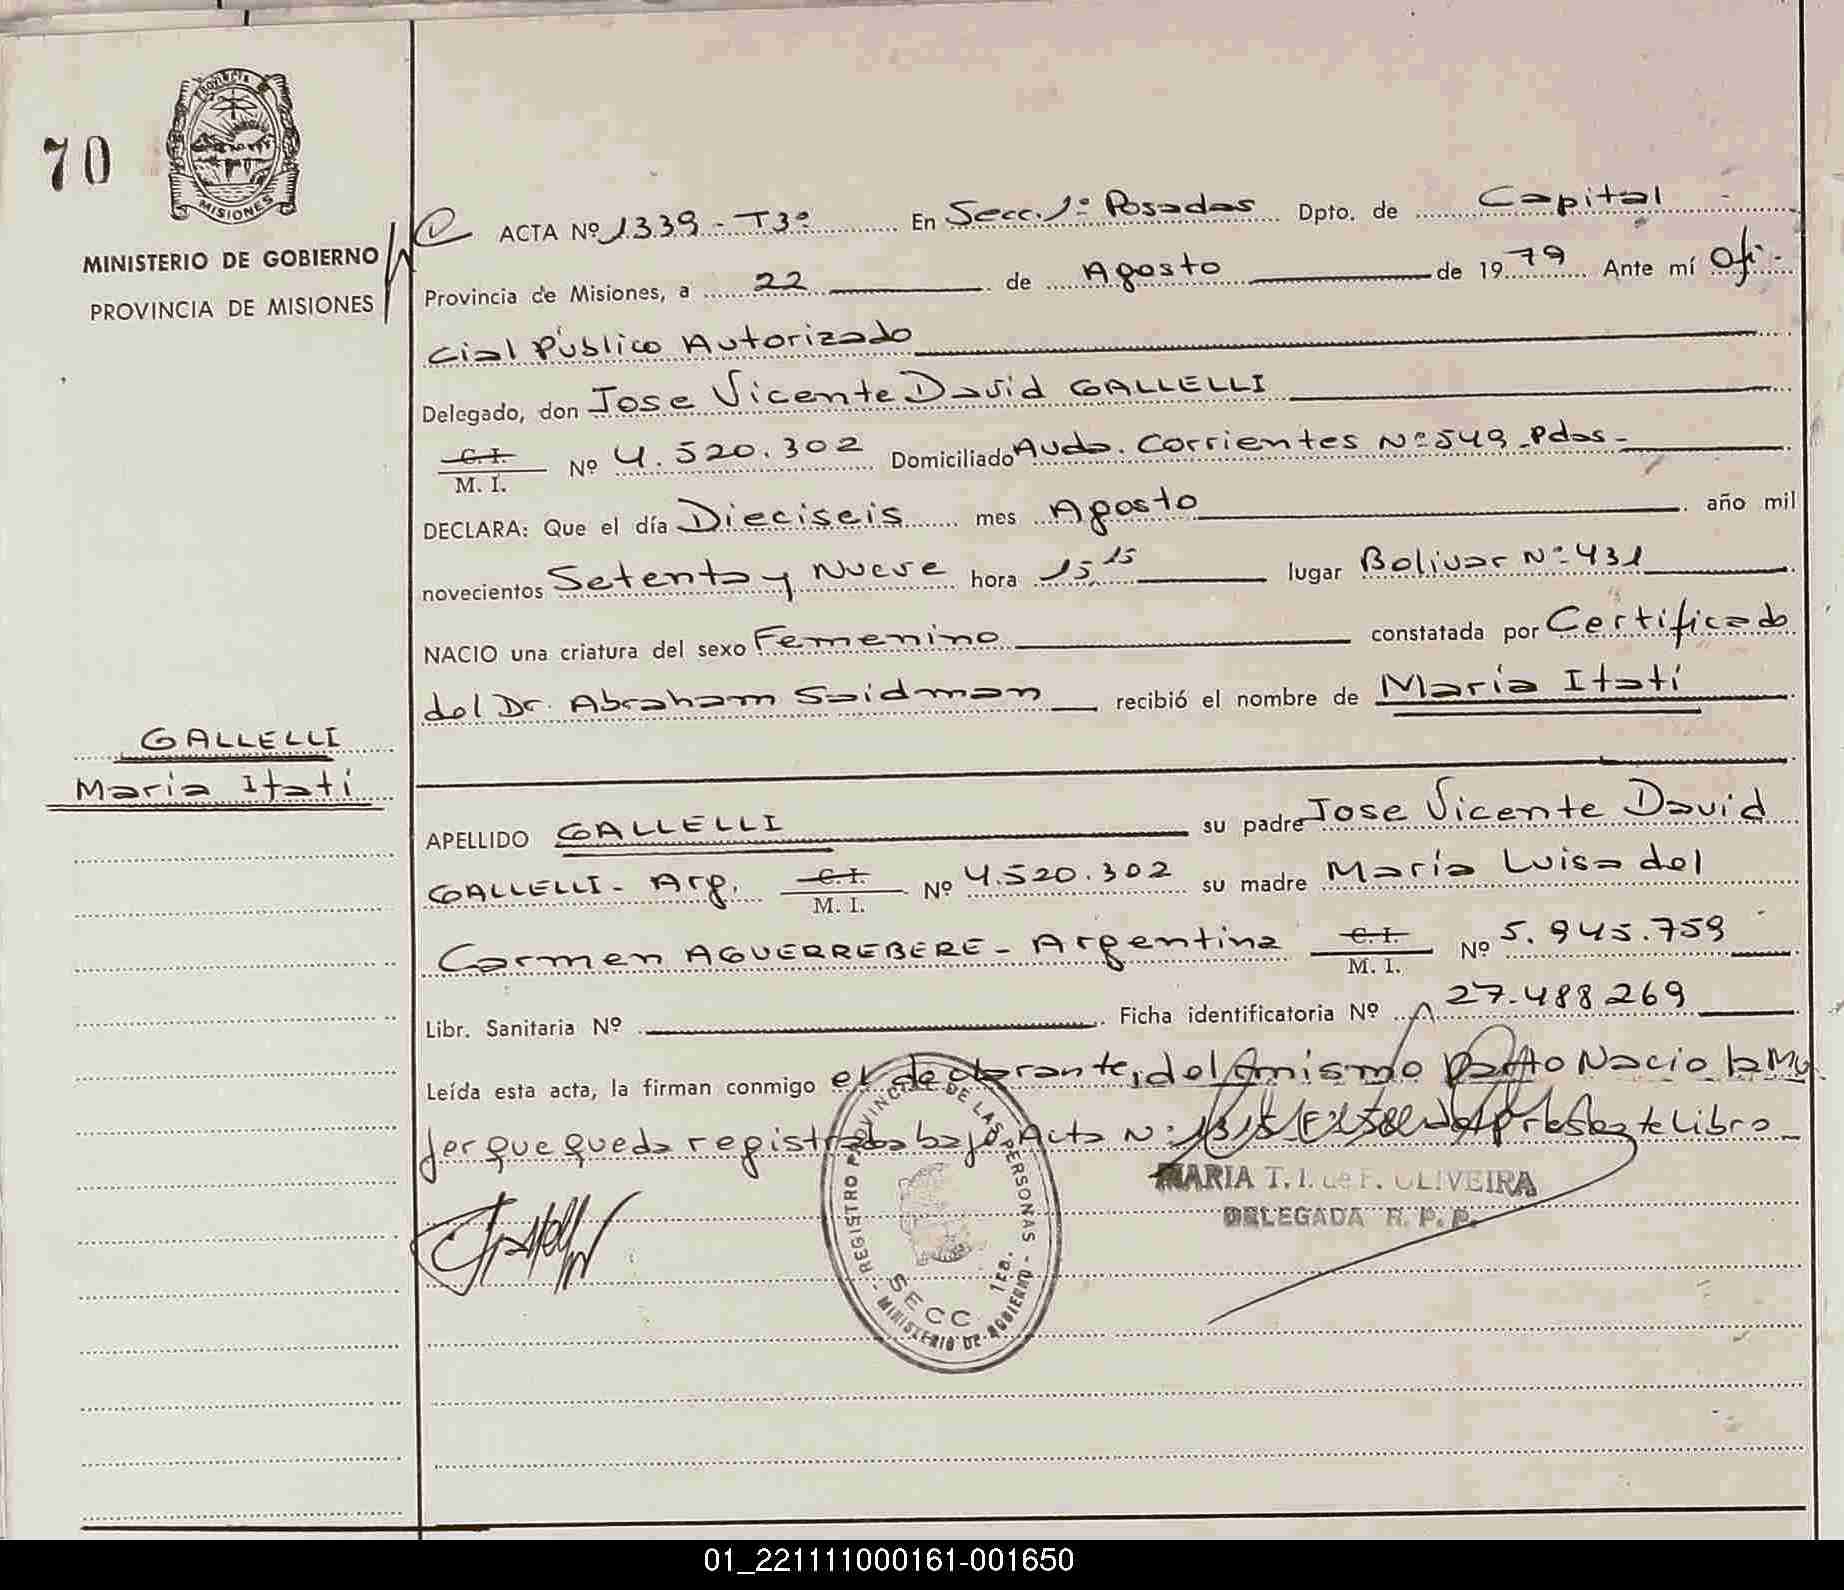 70
PROVINCIA
MISIONES
MINISTERIO DE GOBIERNO
PROVINCIA DE MISIONES
ACTA Nº 1339 - T3º En Secc. 1º Posadas Dpto. de Capital
Provincia de Misiones, a 22 de Agosto de 1979 Ante mí Ofi-
cial Público Autorizado
Delegado, don Jose Vicente David GALLELLI
C.I. M. I. Nº 4.520.302 Domiciliado Avda. Corrientes Nº 549 - Pdas -
DECLARA: Que el día Dieciseis mes Agosto año mil
novecientos Setenta y Nueve hora 15,15 lugar Bolivar Nº 431
NACIO una criatura del sexo Femenino constatada por Certificado
del Dr. Abraham Saidman recibió el nombre de María Itatí
GALLELLI
María Itatí
APELLIDO GALLELLI su padre Jose Vicente David
GALLELLI - Arg. C.I. M. I. Nº 4.520.302 su madre María Luisa del
Carmen AGUERREBERE - Argentina C.I. M. I. Nº 5.945.759
Libr. Sanitaria Nº Ficha identificatoria Nº 27.488269
Leída esta acta, la firman conmigo el declarante, del mismo parto Nacio la Mu
jer que queda registrada bajo Acta Nº del presente libro -
MARIA T. I. de F. OLIVEIRA
DELEGADA R. P. P.
REGISTRO PROVINCIAL DE LAS PERSONAS - MINISTERIO DE GOBIERNO -
SECC 1ra.
01_221111000161-001650